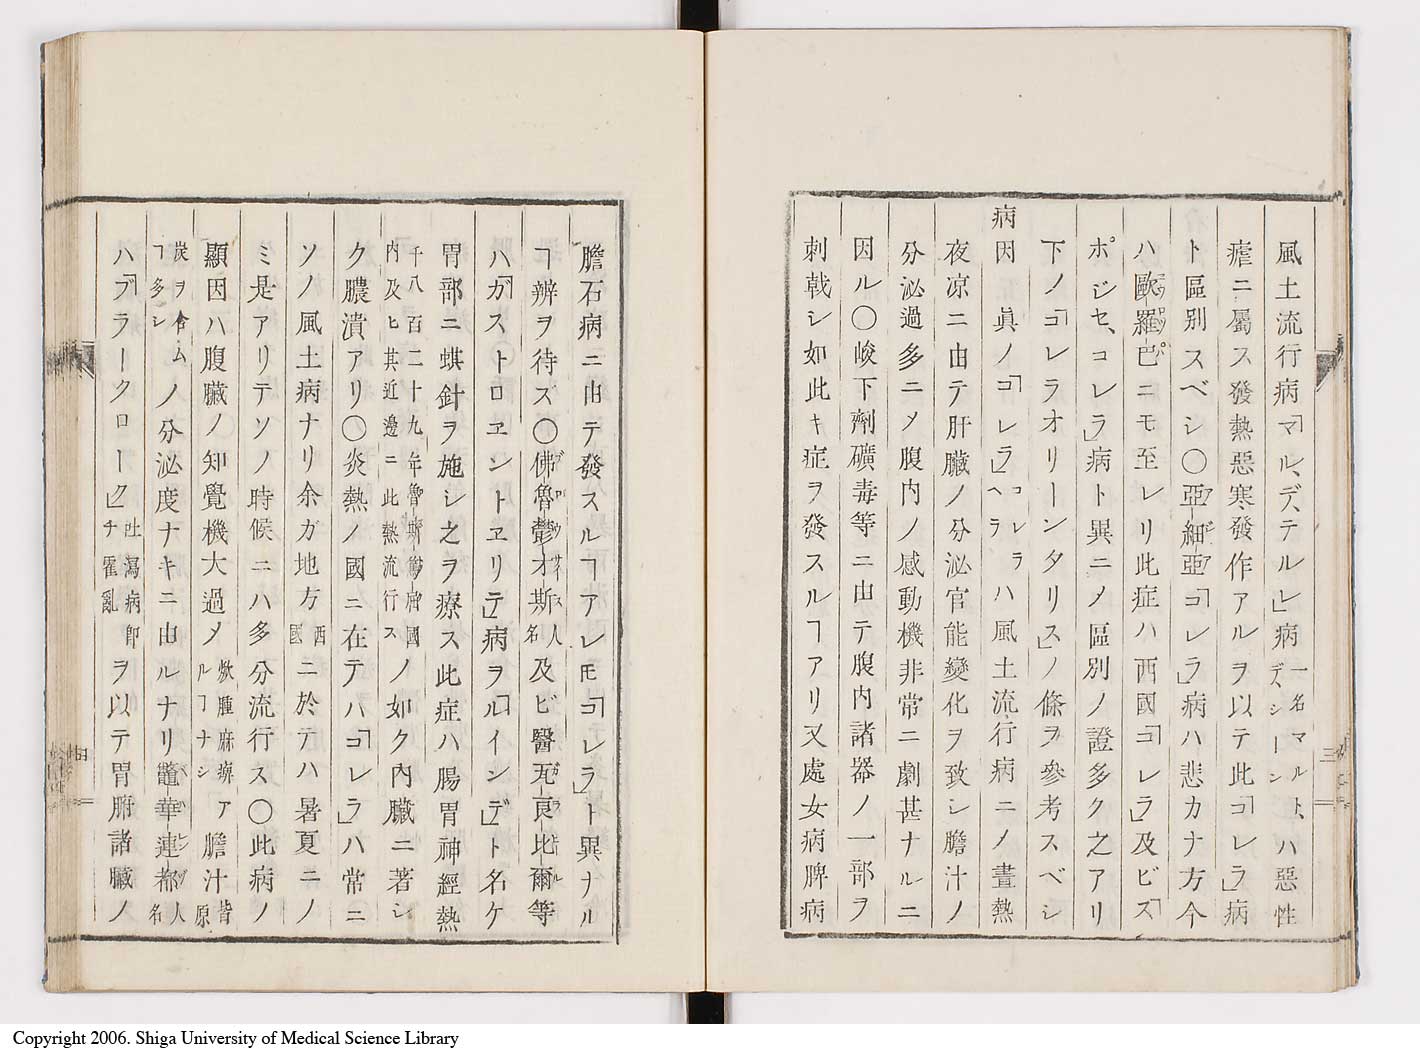 風土流行病「マル、デ、テルレ」病一名マルト、デ、シーンハ惡性
瘧ニ屬ス發熱惡寒發作アルヲ以テ此「コレラ」病
ト區別スベシ〇亞細亞「コレラ」病ハ悲カナ方今
ハ歐羅巴ニモ至レリ此症ハ西國「コレラ」及ビ「ス
ポジセ、コレラ」病ト異ニノ區別ノ證多ク之アリ
下ノ「コレラオリーンタリス」ノ條ヲ參考スベシ
病因 眞ノ「コレラ」ヘラコレラハ風土流行病ニノ晝熱
夜凉ニ由テ肝臓ノ分泌官能變化ヲ致シ膽汁ノ
分泌過多ニメ腹内ノ感動機非常ニ劇甚ナルニ
因ル〇峻下劑礦毒等ニ由テ腹内諸器ノ一部ヲ
刺戟シ如此キ症ヲ發スルヿアリ又處女病脾病
膽石病ニ由テ發スルヿアレ𪜈「コレラ」ト異ナル
ヿ辨ヲ待ズ〇佛魯鬱才斯人名及ビ醫瓦良比爾等
ハ「ガストロヱントヱリテ」病ヲ「ルインデ」ト名ケ
胃部ニ蜞針ヲ施シ之ヲ療ス此症ハ腸胃神經熱
千八百二十九年魯斯國内及ヒ其近邊ニ此熱流行スノ如ク内臓ニ著シ
ク膿潰アリ〇炎熱ノ國ニ在テハ「コレラ」ハ常ニ
ソノ風土病ナリ余ガ地方西國ニ於テハ暑夏ニノ
ミ是アリテソノ時候ニハ多分流行ス〇此病ノ
顯因ハ腹臓ノ知覺機大過メ焮腫麻痹アルヿナシ膽汁皆原
炭ヲ含ムヿ多シノ分泌度ナキニ由ルナリ鼈華連都人名
ハ「ブラークローク」吐瀉病即チ霍亂ヲ以テ胃腑諸臓ノ
三
四
Copyright 2006. Shiga University of Medical Science Library